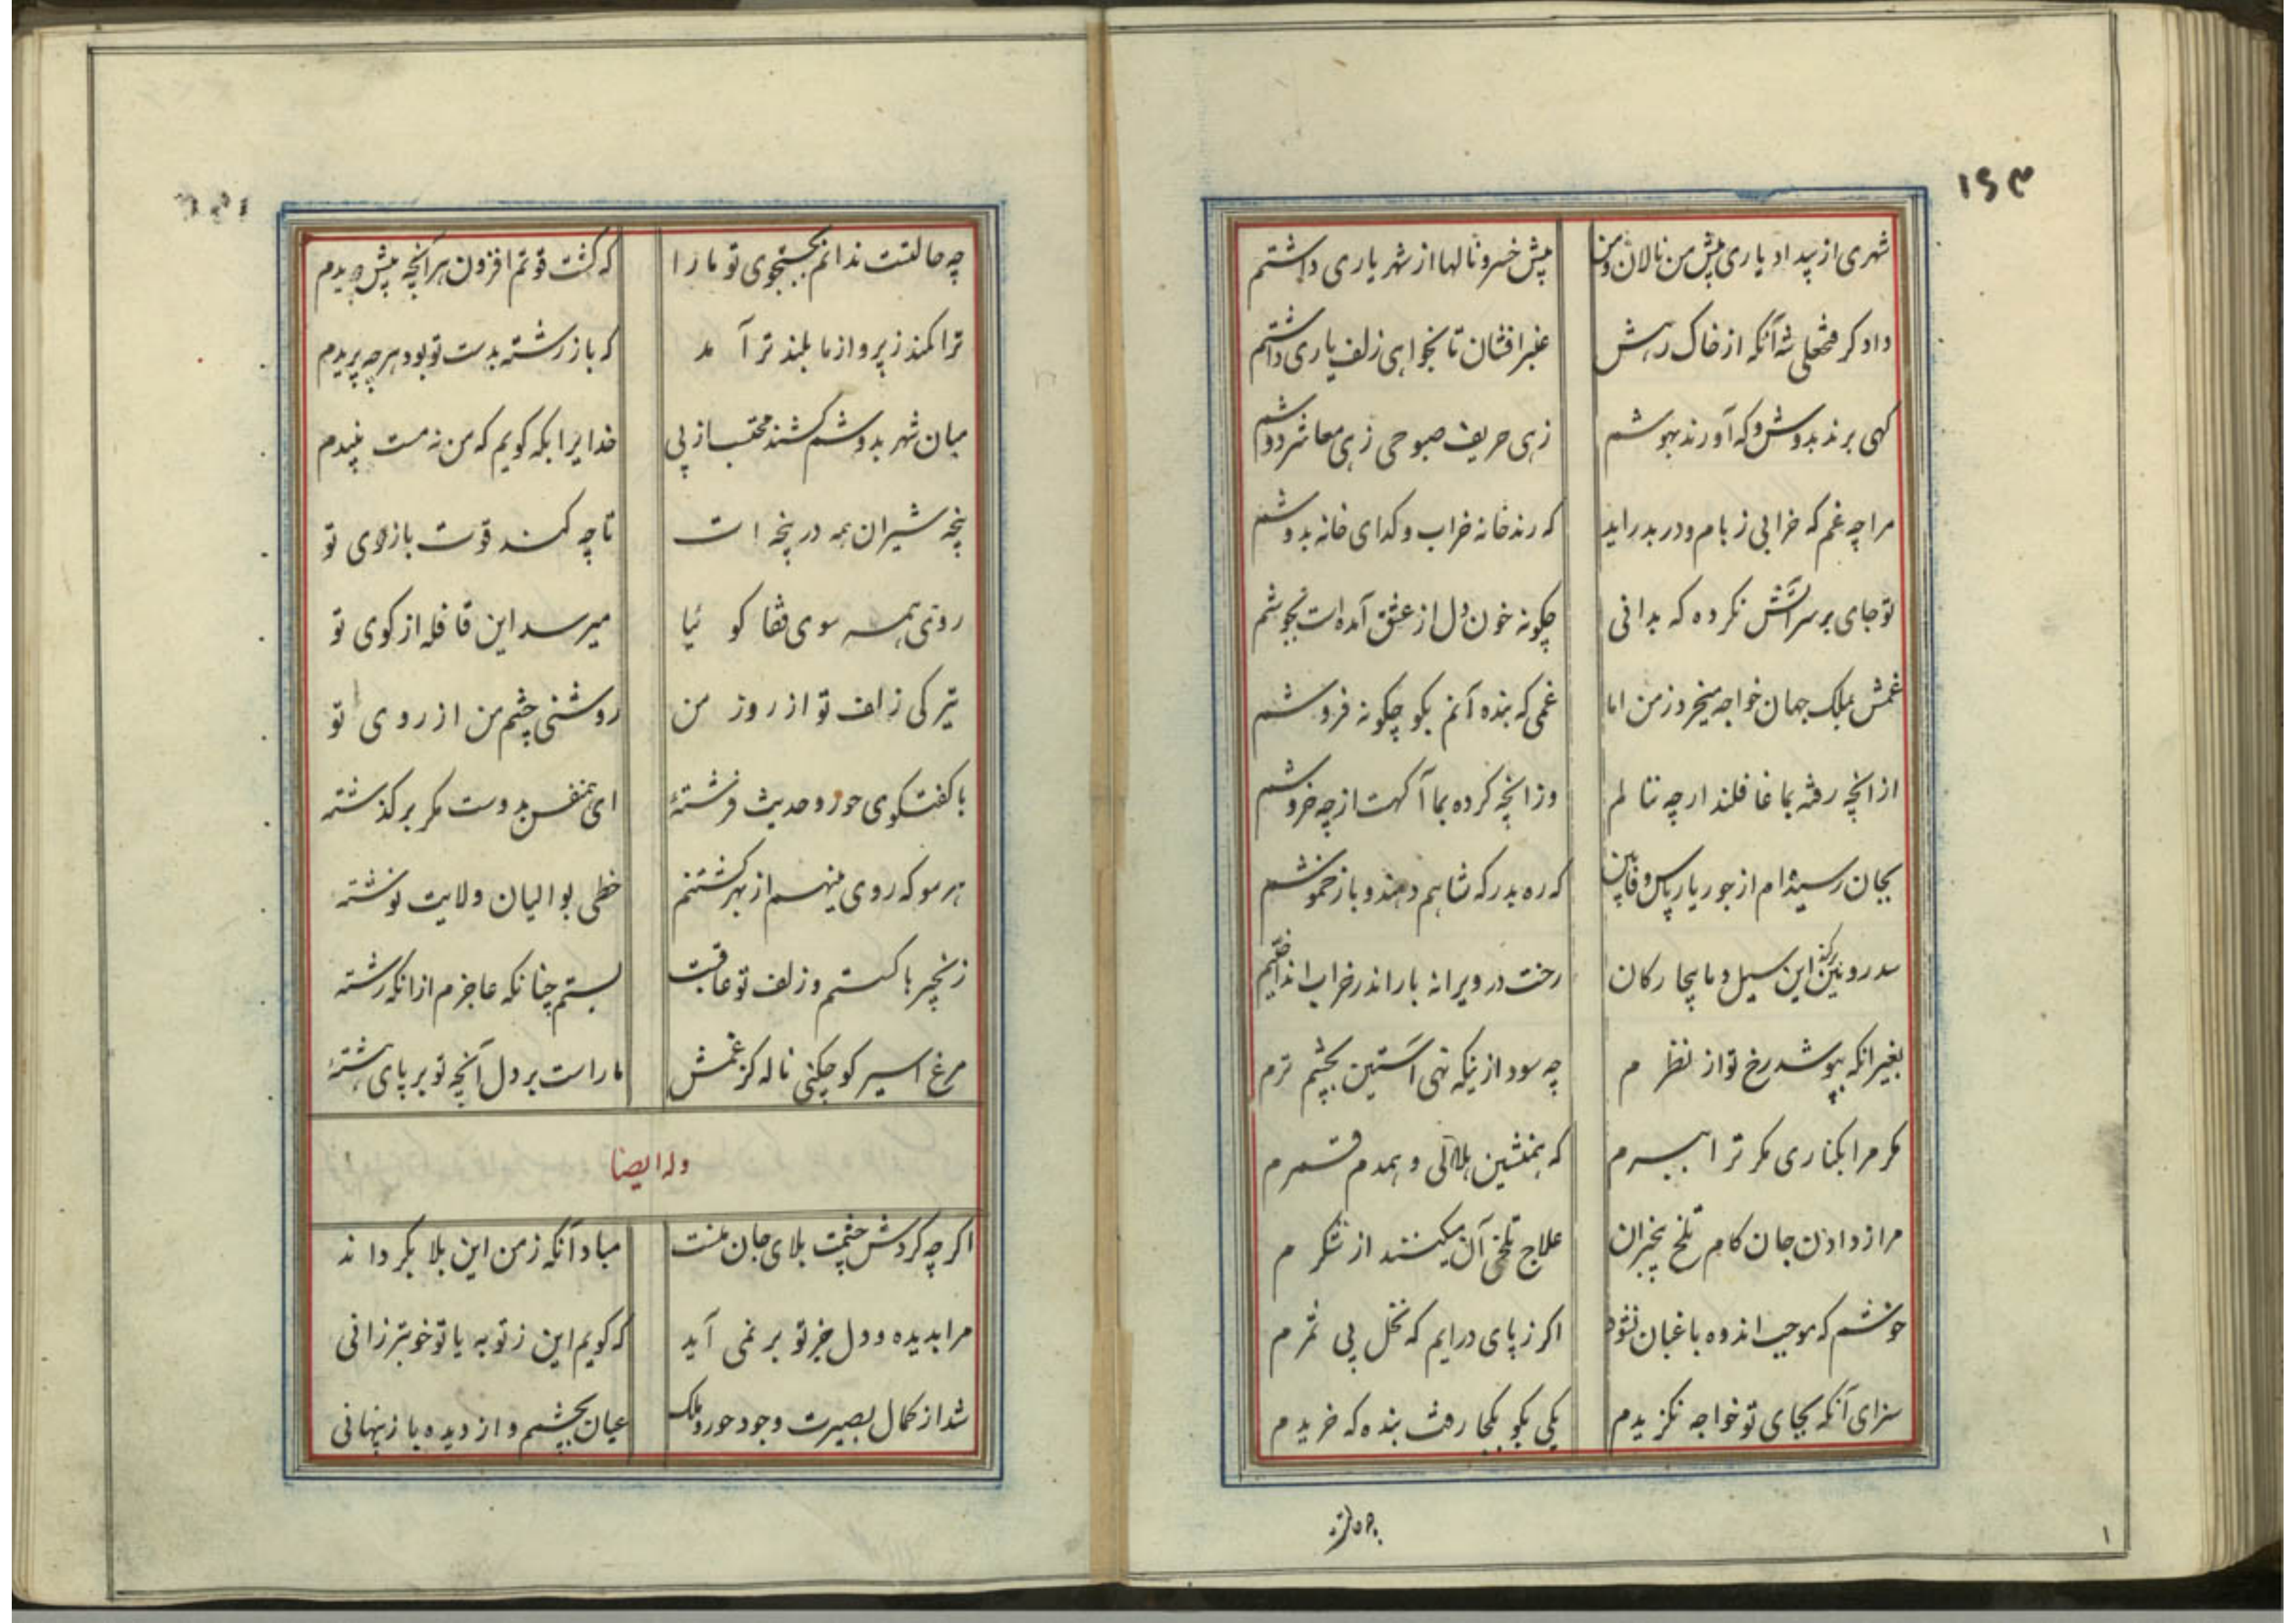 ۱۶۳
شهری از بیداد یاری پیش من نالان و من پیش خسرو نالها از شهریاری داشتم
دادکر فتحعلی شه آنکه از خاک رهش عنبرافشان تا بخواهی زلف یاری داشتم
کهی برند بدوش و که آورند بهوشم زهی حریف صبوحی زهی معاشر دوشم
مرا چه غم که خرابی ز بام و در بدر اید که رند خانه خراب و کدای خانه بدوشم
تو جای بر سر آتش نکرده که بدانی چکونه خون دل از عشق آمده است بجوشم
غمش بملک جهان خواجه میخرد ز من اما غمی که بنده آنم بکو چکونه فروشم
از انچه رفته بما غافلند ار چه بنالم وز انچه کرده بما آکهست از چه خروشم
بجان رسیده ام از جور یار پاس وفا بین که ره بدرکه شاهم دهند و باز خموشم
سد رویین برکند این سیل و ما بیچارکان رخت در ویرانه بار اندر خراب انداختیم
بغیر انکه بپوشد رخ تو از نظرم چه سود ازینکه نهی آستین بچشم ترم
مکر مرا بکناری مکر ترا ببرم که همنشین هلالی و همدم قمرم
مرا ز دادن جان کام تلخ بیخبران علاج تلخی آن میکنند از شکرم
خوشم که موجب اندوه باغبان نشود اکر ز پای درایم که نخل بی ثمرم
سزای آنکه بجای تو خواجه نکزیدم یکی بکو بکجا رفت بنده که خریدم
چه حالتست
چه حالتست ندانم بجستجوی تو ما را که کشت قوتم افزون هر آنچه بیش دویدم
ترا کمند ز پرواز ما بلندتر آمد که باز رشته بدست تو بود هر چه پریدم
میان شهر بدوشم کشند محتسب از پی خدایرا بکه کویم که من نه مست نبیدم
پنجه شیران همه در پنجه ات تا چه کمند قوت بازوی تو
روی همه سوی قفا کوئیا میرسد این قافله از کوی تو
تیرکی زلف تو از روز من روشنی چشم من از روی تو
با کفتکوی حور و حدیث فرشتهٔ ای همنفس بدوست مکر برکذشته
هر سو که روی مینهم از بهر کشتنم خطی بوالیان ولایت نوشته
زنجیرها کستم و زلف تو عاقبت بستم چنانکه عاجزم از انکه رشته
مرغ اسیر کو چکنی ناله کز غمش ما راست بر دل آنچه تو بر پای هشتهٔ
وله ایضا
اکر چه کردش چشمت بلای جان منست مباد آنکه ز من این بلا بکرداند
مرا بدیده و دل جز تو بر نمی آید که کویم این ز تو به یا تو خوبتر زانی
شد از کمال بصیرت وجود حور و ملک عیان بچشم و از دیده باز پنهانی